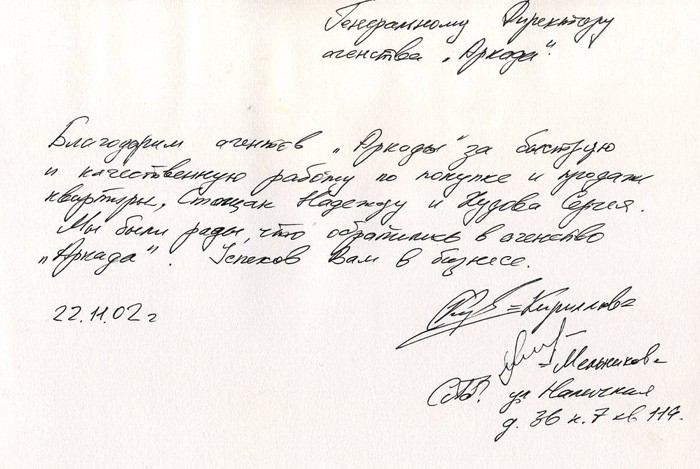 Генеральному Директору
агенства „Аркада".
Благодарим агентов „Аркады" за быструю
и качественную работу по покупке и продаже
квартиры, Стощак Надежду и Кузова Сергея.
Мы были рады, что обратились в агенство
„Аркада". Успехов Вам в бизнесе.
22.11.02 г
=Кириллова
=Мельникова
СПб. ул Наличная
д. 36 к. 7 кв 114.